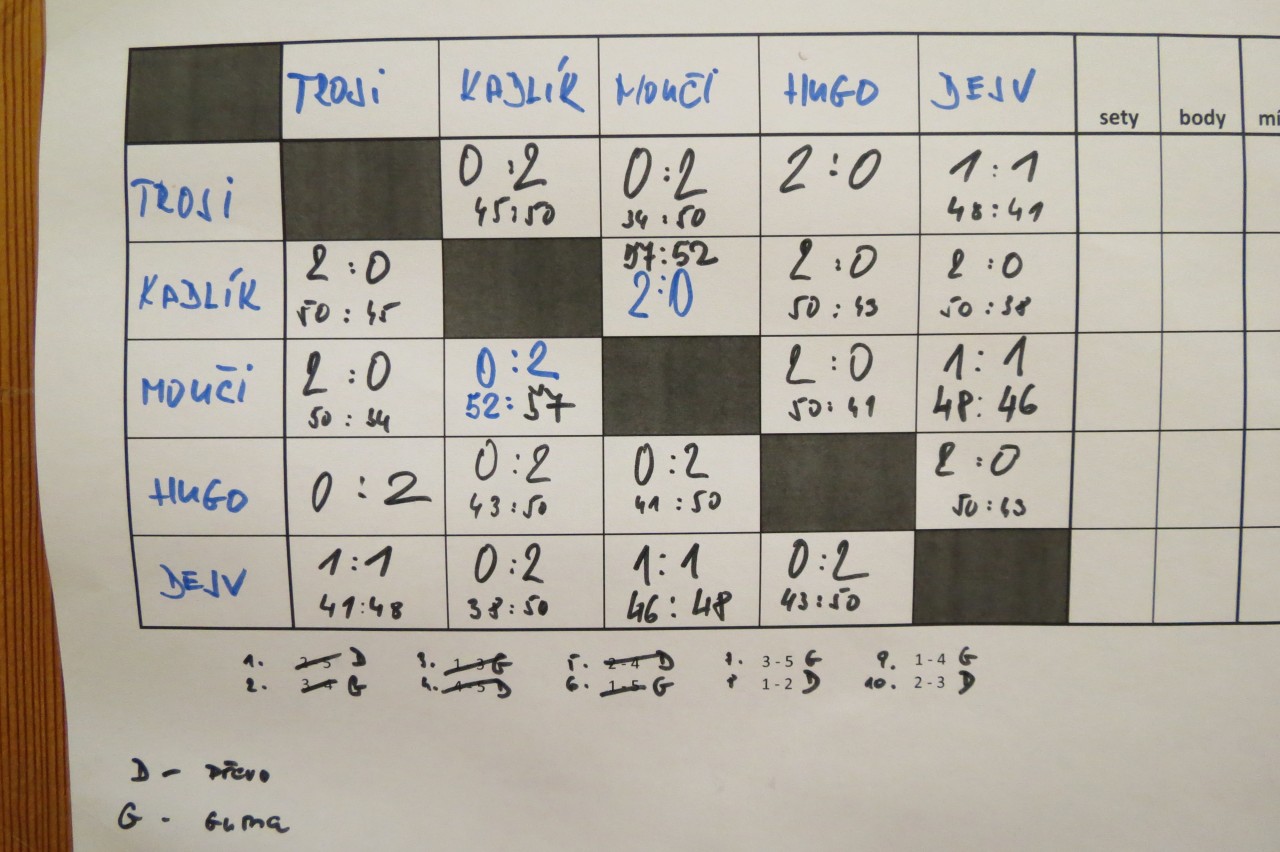 TROJI KADLÍK MOUČI HUGO DEJV
sety body mí
TROJI 0:2 0:2 2:0 1:1
45:50 34:50 48:41
KADLÍK 2:0 57:52 2:0 2:0
50:45 2:0 50:43 50:38
MOUČI 2:0 0:2 2:0 1:1
50:34 52:57 50:41 48:46
HUGO 0:2 0:2 0:2 2:0
43:50 41:50 50:43
DEJV 1:1 0:2 1:1 0:2
41:48 38:50 46:48 43:50
1. 2-5 D 3. 1-3 G 5. 2-4 D 7. 3-5 G 9. 1-4 G
2. 3-4 G 4. 4-5 D 6. 1-5 G 8 1-2 D 10. 2-3 D
D - DŘEVO
G - GUMA